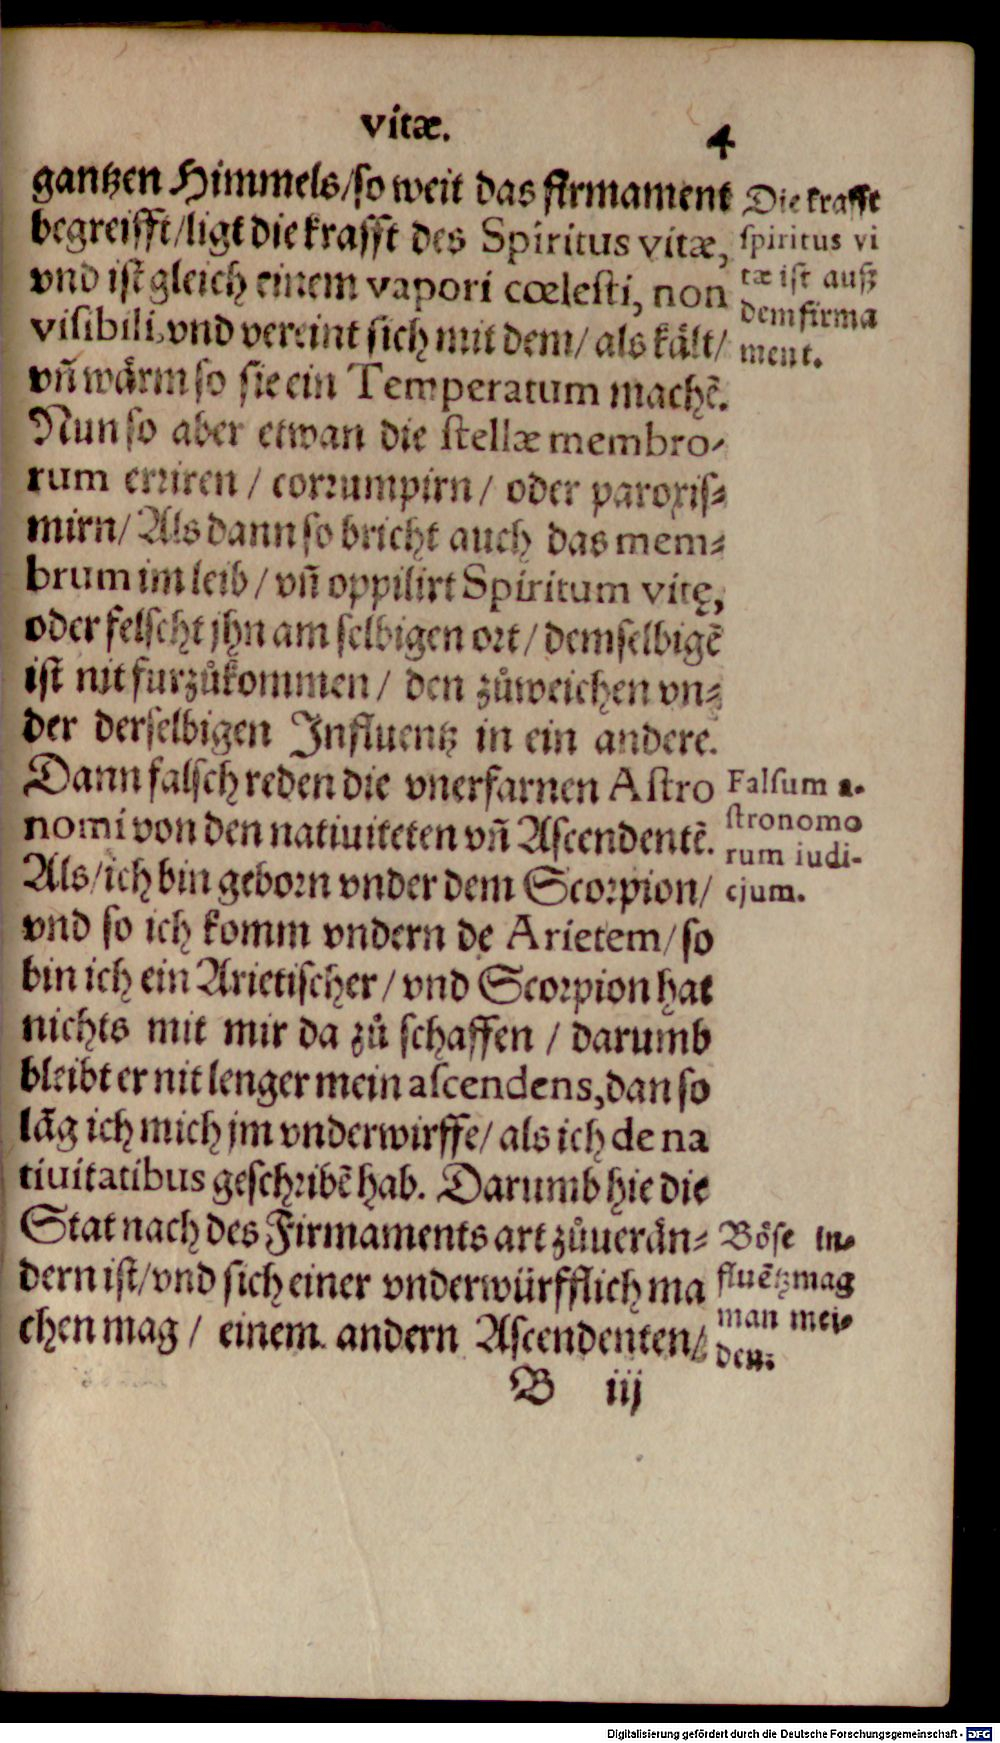 vitæ.
4
gantzen Himmels/so weit das firmament
begreifft/ligt die krafft des Spiritus vitæ,
vnd ist gleich einem vapori cœlesti, non
visibili, vnd vereint sich mit dem/ als kält/
vñ wärm so sie ein Temperatum machẽ.
Nun so aber etwan die stellæ membro-
rum erriren / corrumpirn / oder paroxis-
mirn/ Als dann so bricht auch das mem-
brum im leib / vñ oppilirt Spiritum vitę,
oder felscht jhn am selbigen ort / demselbigẽ
ist nit furzůkommen / den zůweichen vn-
der derselbigen Influentz in ein andere.
Dann falsch reden die vnerfarnen Astro
nomi von den natiuiteten vñ Ascendentẽ.
Als/ich bin geborn vnder dem Scorpion/
vnd so ich komm vndern de Arietem/ so
bin ich ein Arietischer / vnd Scorpion hat
nichts mit mir da zů schaffen / darumb
bleibt er nit lenger mein ascendens, dan so
lãg ich mich jm vnderwirffe/ als ich de na
tiuitatibus geschribẽ hab. Darumb hie die
Stat nach des Firmaments art zůuerän-
dern ist/vnd sich einer vnderwürfflich ma
chen mag / einem andern Ascendenten/
B iij
Die krafft
spiritus vi
tæ ist auß
dem firma
ment.
Falsum a-
stronomo
rum iudi-
cjum.
Böse in-
fluẽtz mag
man mei-
den.
Digitalisierung gefördert durch die Deutsche Forschungsgemeinschaft - DFG